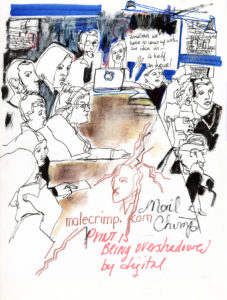 Sometimes we
have to come up with
an idea in
a half
an hour!
malecrimp.com
Mail
Chimp
PRINT IS
BEING OVERSHADOWED
by digital